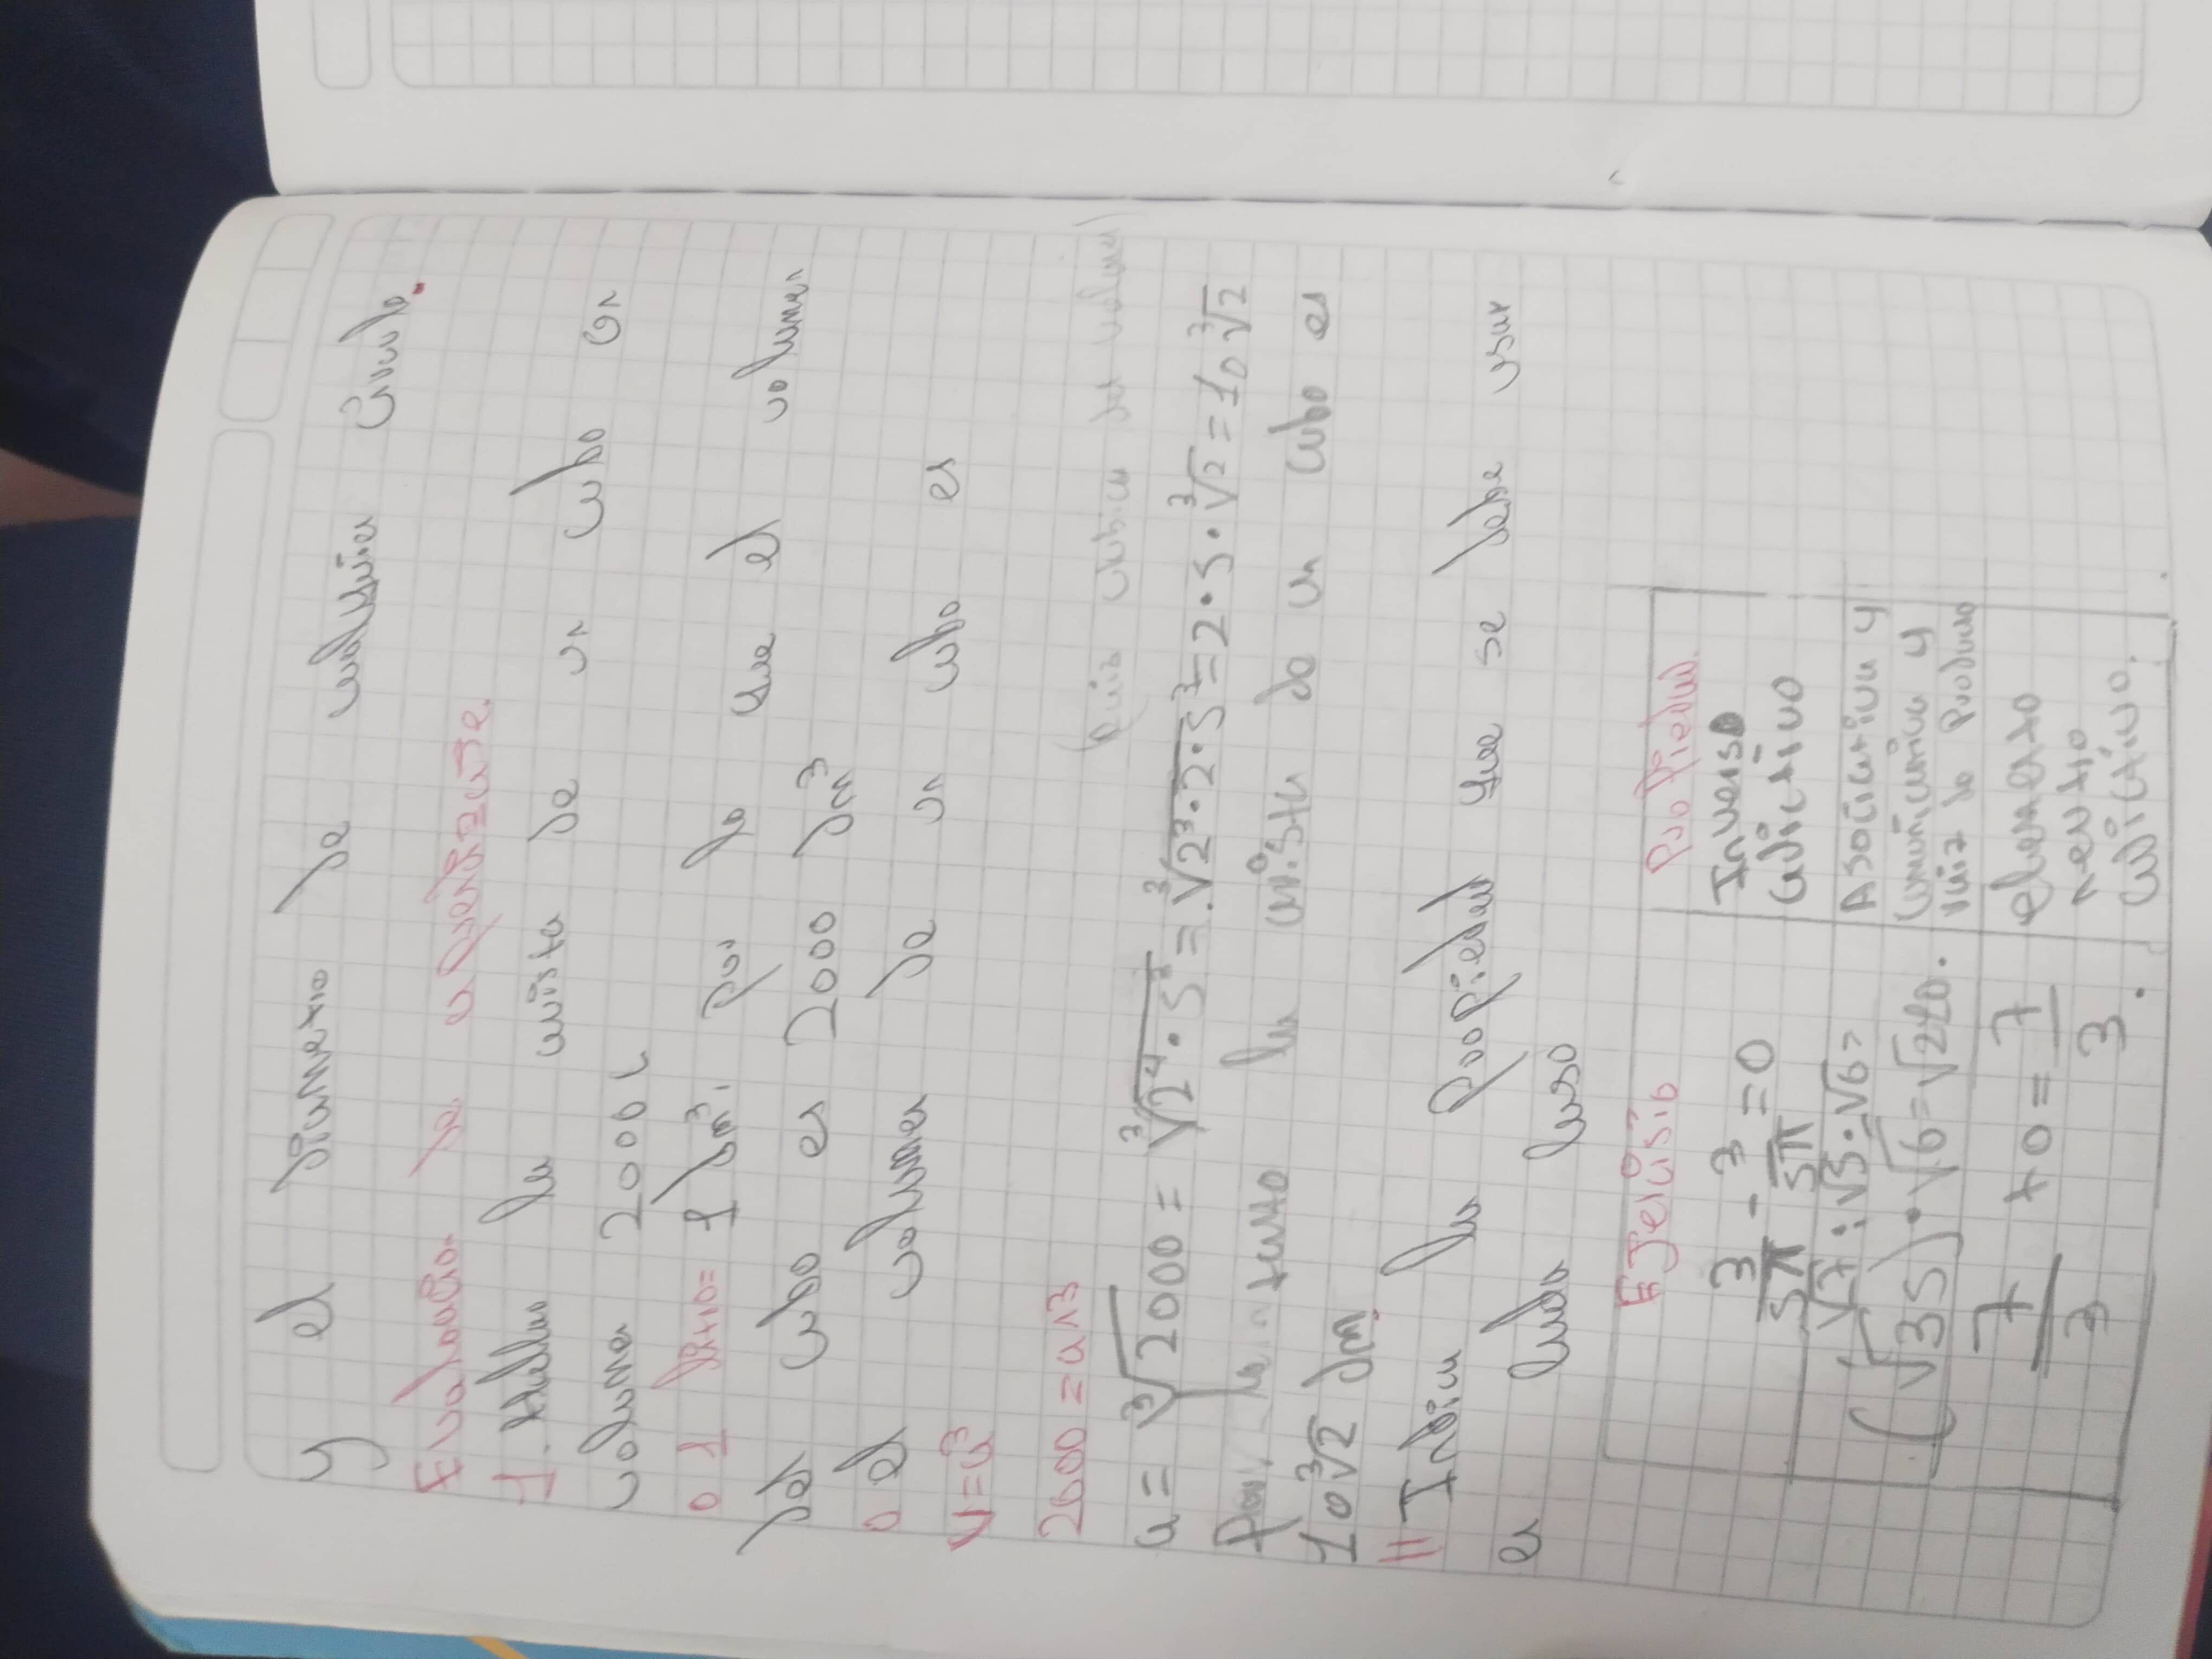 y el diametro de cualquier circulo.
Evaluacion de aprendizaje.
1. Hallar la arista de un cubo con
volumen 2000 L
o 1 litro = 1 dm³. por lo que el volumen
del cubo es 2000 dm³
o el volumen de un cubo es
V=a³
2000 = a^3
(Raiz cubica del volumen)
a = ∛2000 = ∛2⁴·5³ = ∛2³·2·5³ = 2·5·∛2 = 10∛2
Por lo tanto la arista de un cubo es
10∛2 dm.
11 Indica la propiedad que se debe usar
en cada caso
Ejercisio Propiedad.
3/5π - 3/5π = 0 Inverso
adictivo
√7 · √5 · √6 = Asociativa y
(√35) · √6 = √210. conmutativa y
raiz de producto
7/3 + 0 = 7/3. elemento
neutro
adictivo.